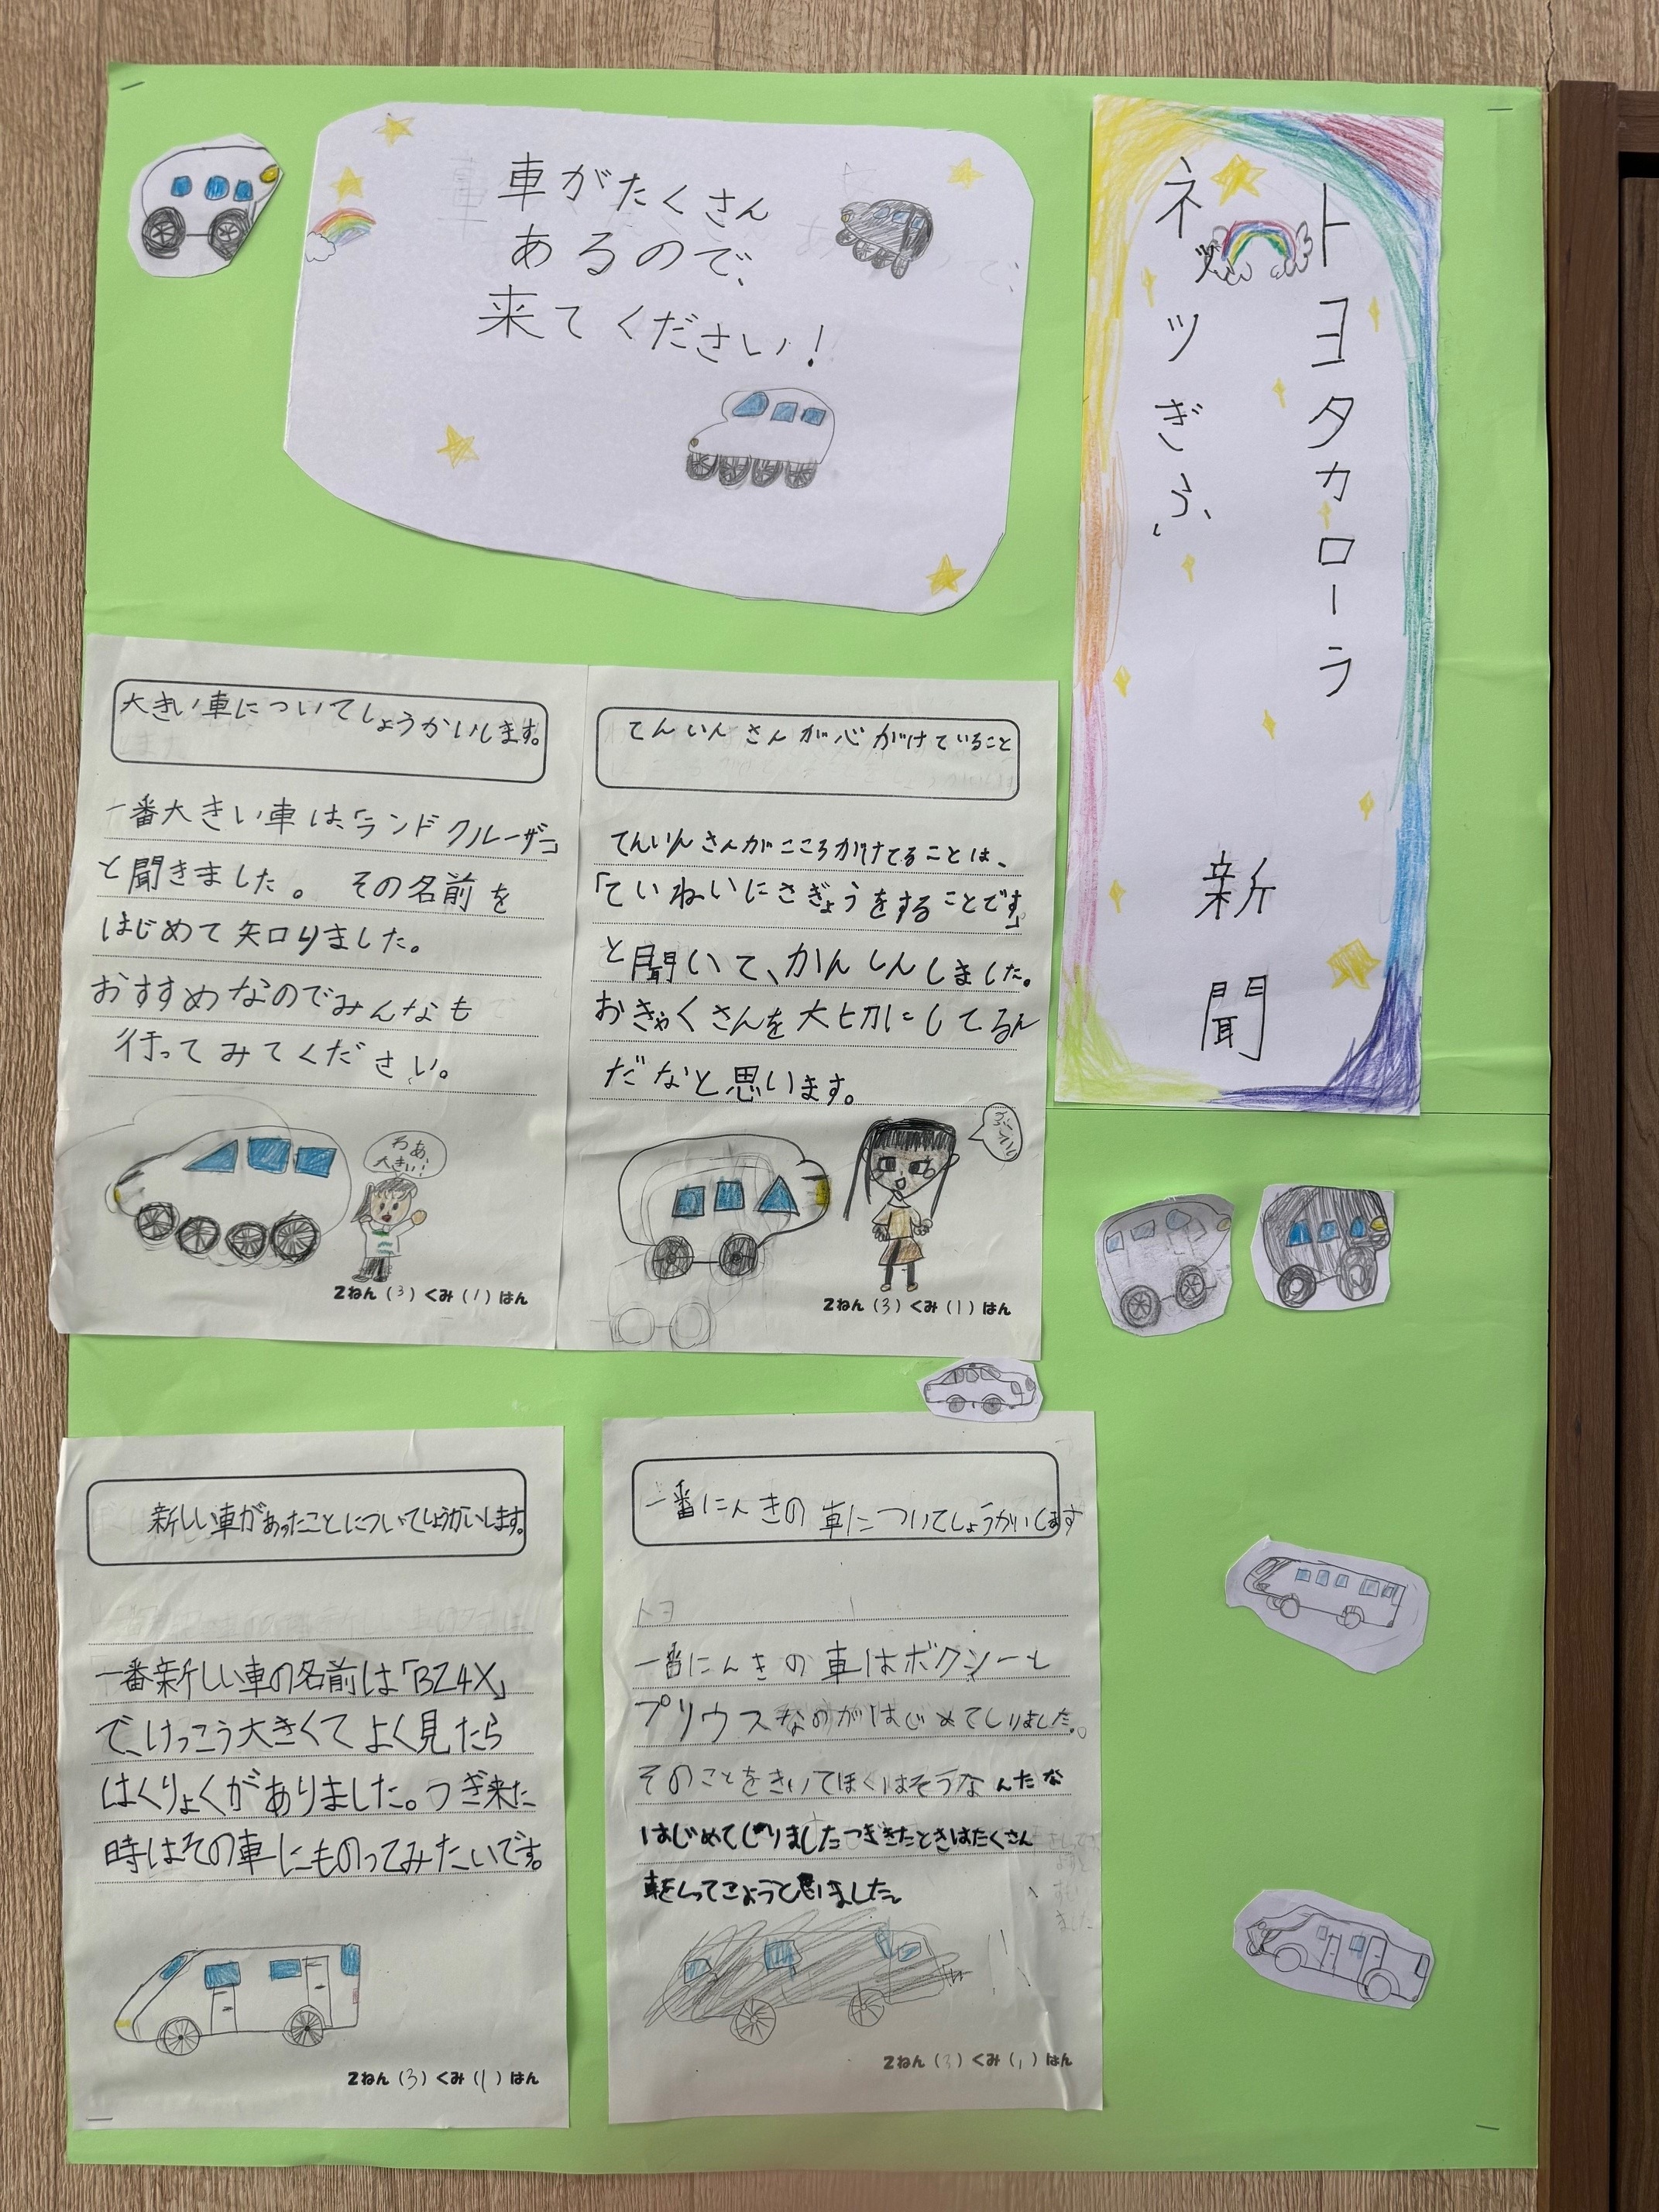 トヨタカローラ
ネッツぎふ
新聞
車がたくさん
あるので、
来てください！
てんいんさんが心がけていること
てんいんさんがこころがけてることは、
「ていねいにさぎょうをすることです」
と聞いて、かんしんしました。
おきゃくさんを大切にしてるん
だなと思います。
2ねん（3）くみ（1）はん
大きい車についてしょうかいします。
一番大きい車は、「ランドクルーザー」
と聞きました。その名前を
はじめて知りました。
おすすめなのでみんなも
行ってみてください。
わあ、
大きい！
2ねん（3）くみ（1）はん
一番にんきの車についてしょうかいします
トヨ
一番にんきの車はボクシーと
プリウスなのがはじめてしりました。
そのことをきいてぼくはそうなんだな
はじめてしりましたつぎきたときはたくさん
車をしってこようと思いました。
2ねん（3）くみ（1）はん
新しい車があったことについてしょうかいします。
一番新しい車の名前は「BZ4X」
で、けっこう大きくてよく見たら
はくりょくがありました。つぎ来た
時はその車にものってみたいです。
2ねん（3）くみ（1）はん